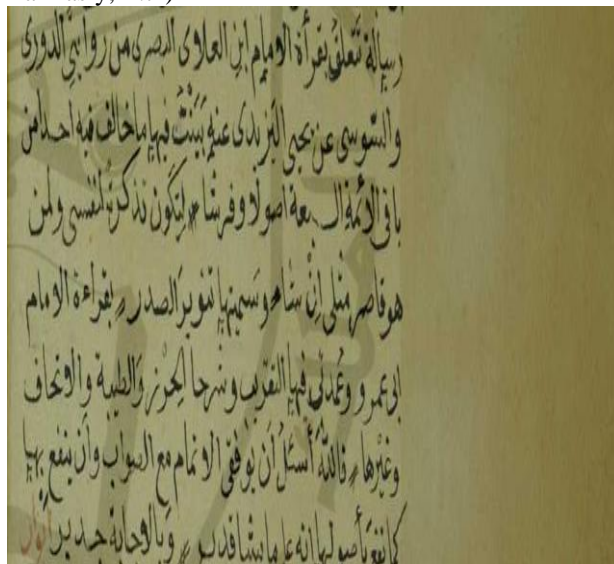 رسالة تتعلق بقرأة الامام ابن العلاوى البصرى من روايتى الدورى
والسوسى عن يحيى اليزيدى عنه بينت فيها ما خالف فيه احدا من
باقى الائمة السبعة اصولا وفرشا لتكون تذكرة لنفسى ولمن
هو قاصر مثلى ان شاء وسميتها تنوير الصدر بقراءة الامام
ابى عمرو وعمدتى فيها التقريب وشرحا الحرز والطيبة والاتحاف
وغيرها فالله أسئل أن يوفقى الاتمام مع الصواب وأن ينفع بها
كما نفع بأصولها انه على ما يشا قدير وبالاجابة جدير